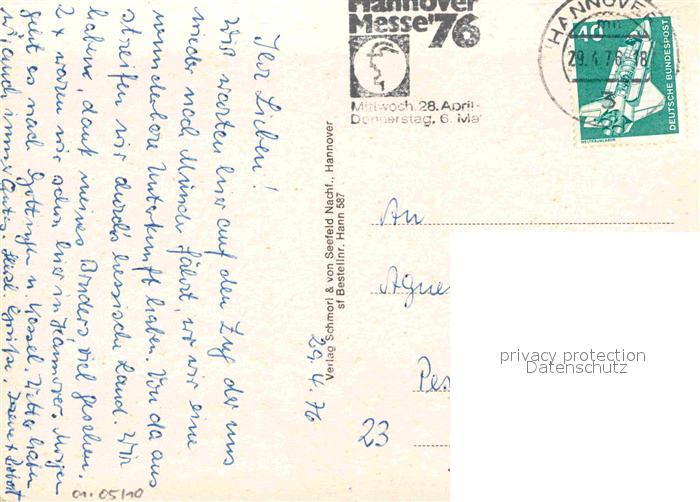 Hannover
Messe '76
Mittwoch, 28. April-
Donnerstag, 6. Mai
HANNOVER
mn
29.4.76-18
40
DEUTSCHE BUNDESPOST
WELTRAUMLABOR
Ihr Lieben!
Wir warten hier auf den Zug der uns
wieder nach fährt, wo wir eine
wunderbare Unterkunft haben. Von da aus
streifen wir durchs hessische Land. Wir
haben, dank meines Bruders viel gesehen.
2 x waren wir schon hier in Hannover. Morgen
geht es nach Göttingen u. Kassel. Wetter haben
wir auch immer Gutes. Herzl. Grüße,
29.4.76
Verlag Schmorl & von Seefeld Nachf., Hannover
sf Bestellnr. Hann 587
An
Agnes
Pes
23
privacy protection
Datenschutz
01.05/10